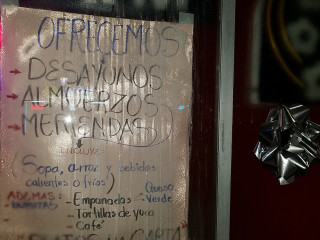 OFRECEMOS
→ DESAYUNOS
→ ALMUERZOS
→ MERIENDAS
INCLUYE:
(Sopa, arroz y bebidas
calientes o frías)
ADEMAS: - Empanadas - Verde
- Tortillas de yuca
- Café